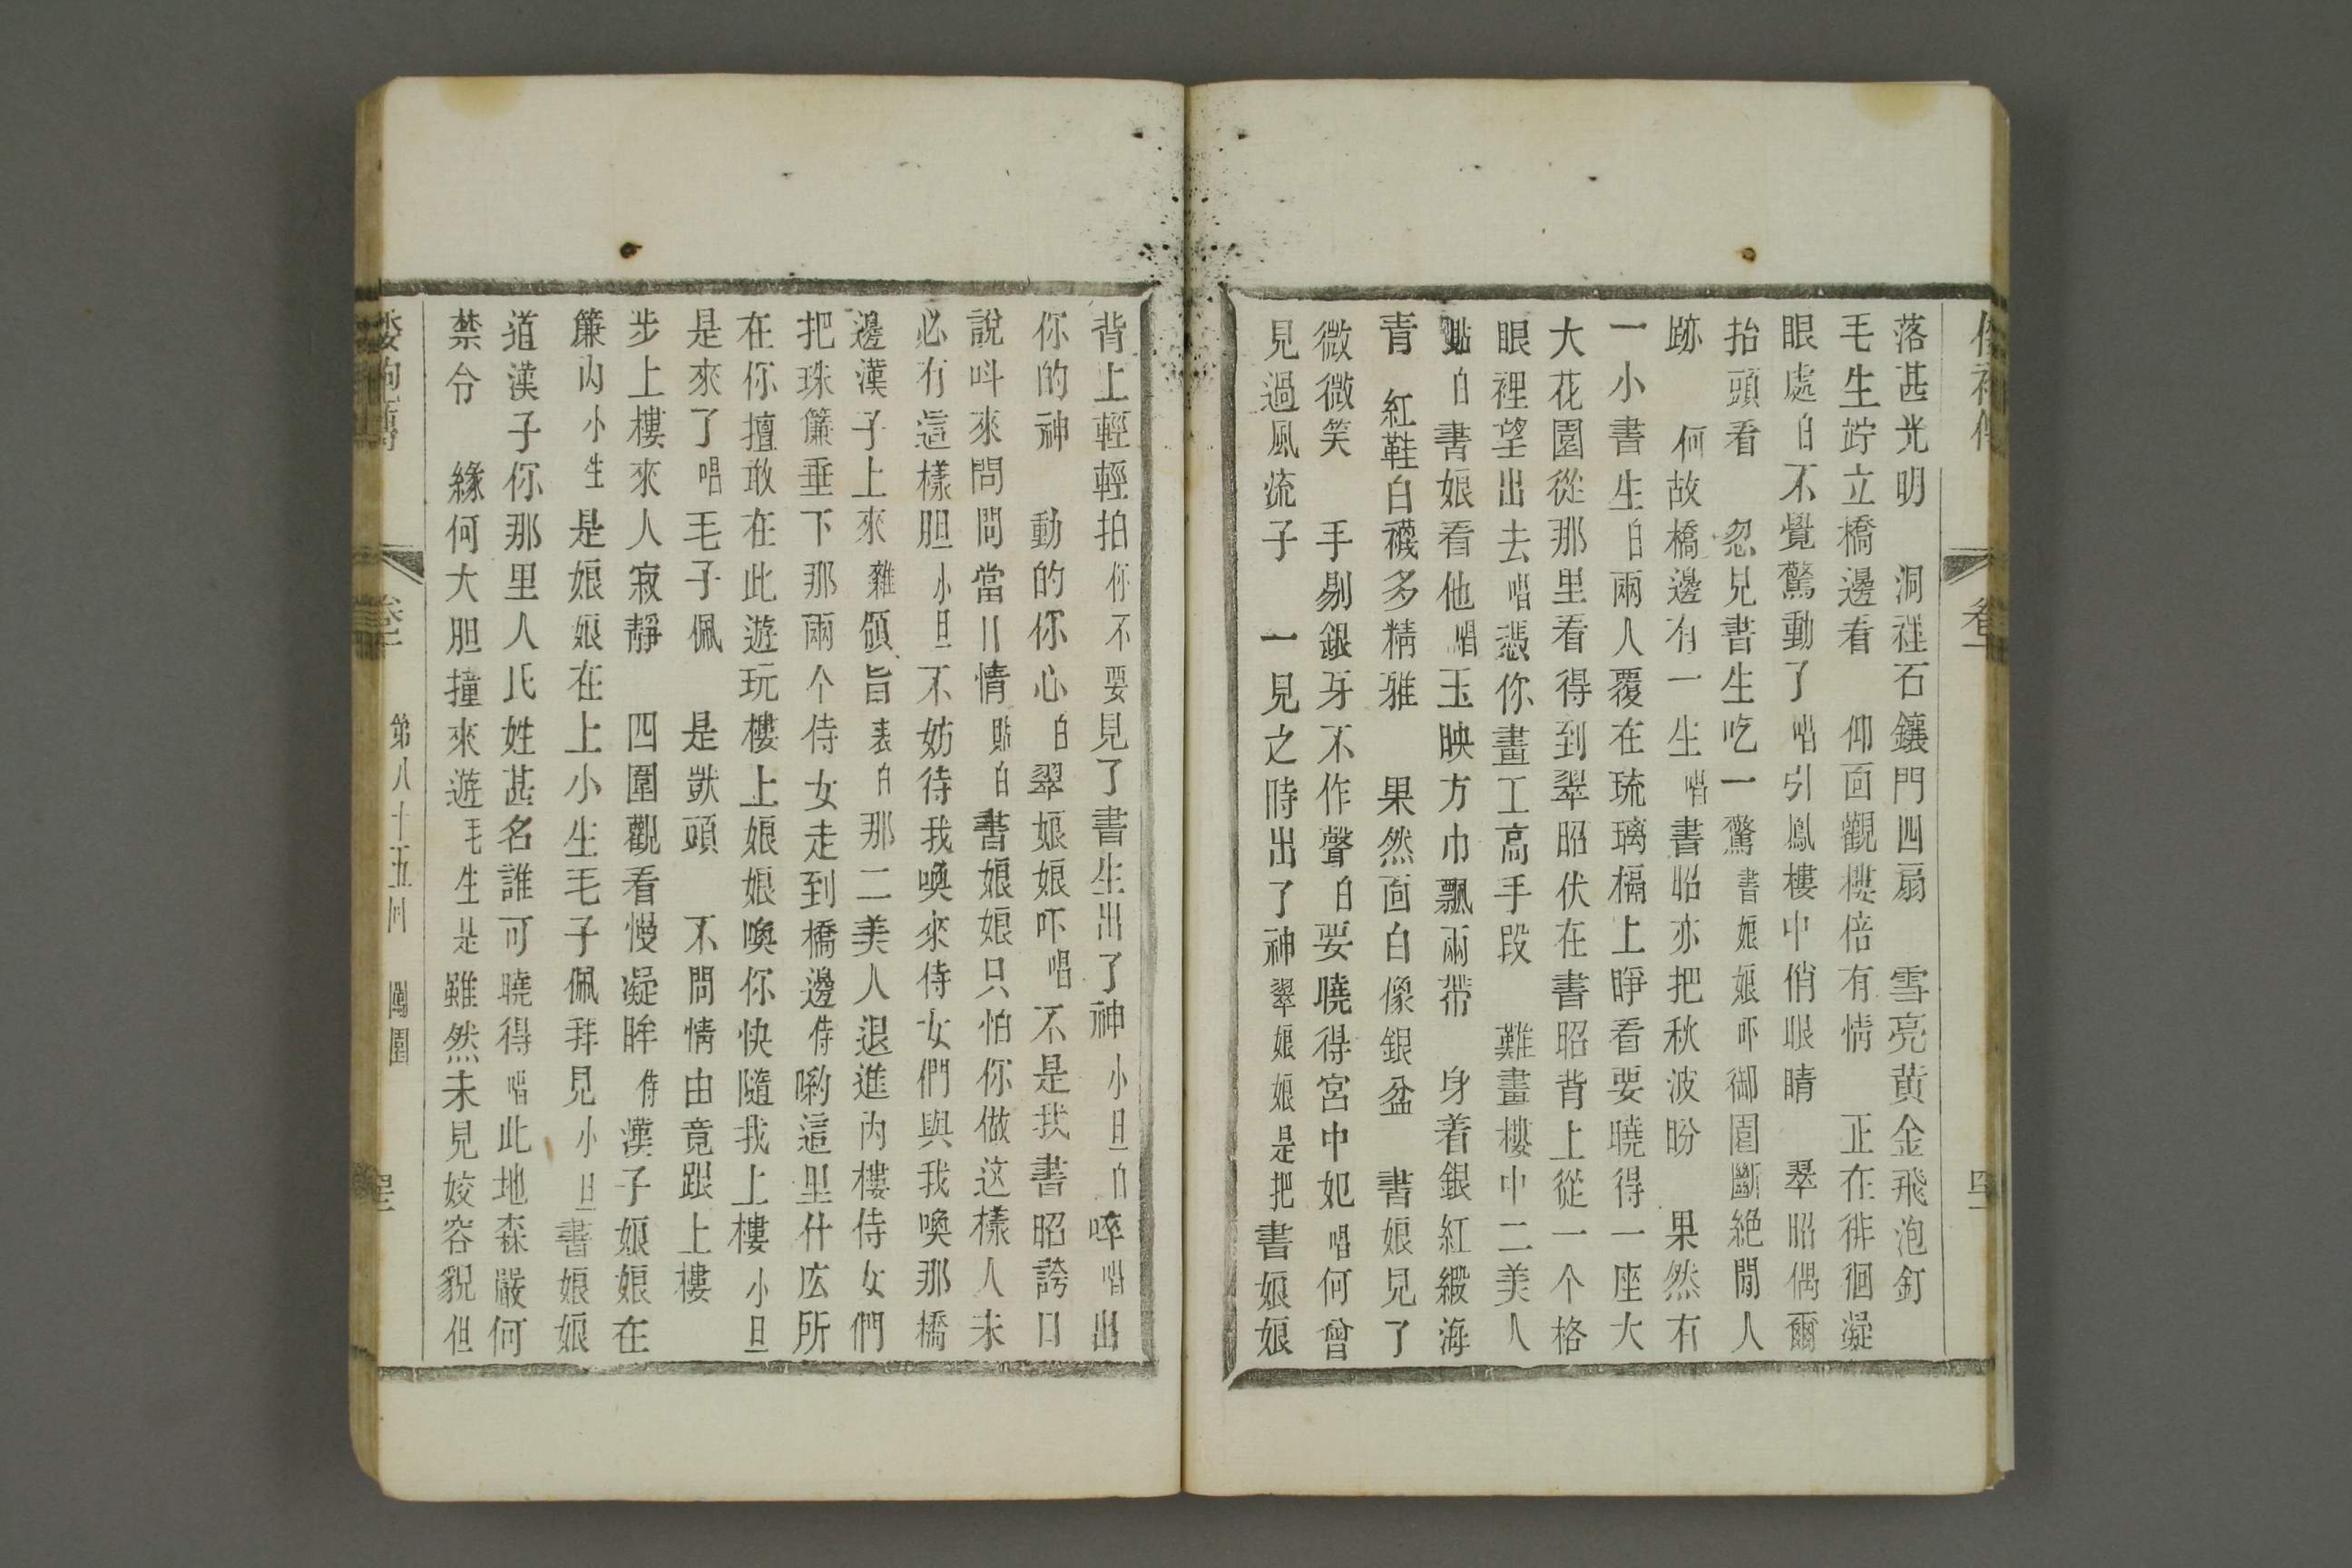 落甚光明　洞裡石鑲門四扇　雪亮黃金飛泡釘
毛生竚立橋邊看　仰面觀樓倍有情　正在徘徊凝
眼處白不覺驚動了唱引鳳樓中俏眼睛　翠昭偶爾
抬頭看　忽見書生吃一驚書娘娘吓御園斷絕閒人
跡　何故橋邊有一生唱書昭亦把秋波盼　果然有
一小書生白兩人覆在琉璃槅上睜看要曉得一座大
大花園從那里看得到翠昭伏在書昭背上從一个格
眼裡望出去唱憑你畫工高手段　難畫樓中二美人
貼白書娘看他唱玉映方巾飄兩帶　身着銀紅緞海
青　紅鞋白襪多精雅　果然面白像銀盆　書娘見了
微微笑　手剔銀牙不作聲白要曉得宮中妃唱何曾
見過風流子　一見之時出了神翠娘娘是把書娘娘
背上輕輕拍你不要見了書生出了神小旦白啐唱出
你的神　動的你心白翠娘娘吓唱不是我書昭誇口
說呌來問問當〢情貼白書娘娘只怕你做这樣人未
必有這樣胆小旦不妨待我喚來侍女們與我喚那橋
邊漢子上來雜領旨表白那二美人退進內樓侍女們
把珠簾垂下那兩个侍女走到橋邊侍喲這里什庅所
在你擅敢在此遊玩樓上娘娘喚你快隨我上樓小旦
是來了唱毛子佩　是獃頭　不問情由竟跟上樓
步上樓來人寂靜　四圍觀看慢凝眸侍漢子娘娘在
簾內小生是娘娘在上小生毛子佩拜見小旦書娘娘
道漢子你那里人氏姓甚名誰可曉得唱此地森嚴何
禁令　緣何大胆撞來遊毛生是雖然未見姣容貌但
第八十五回　鬧園